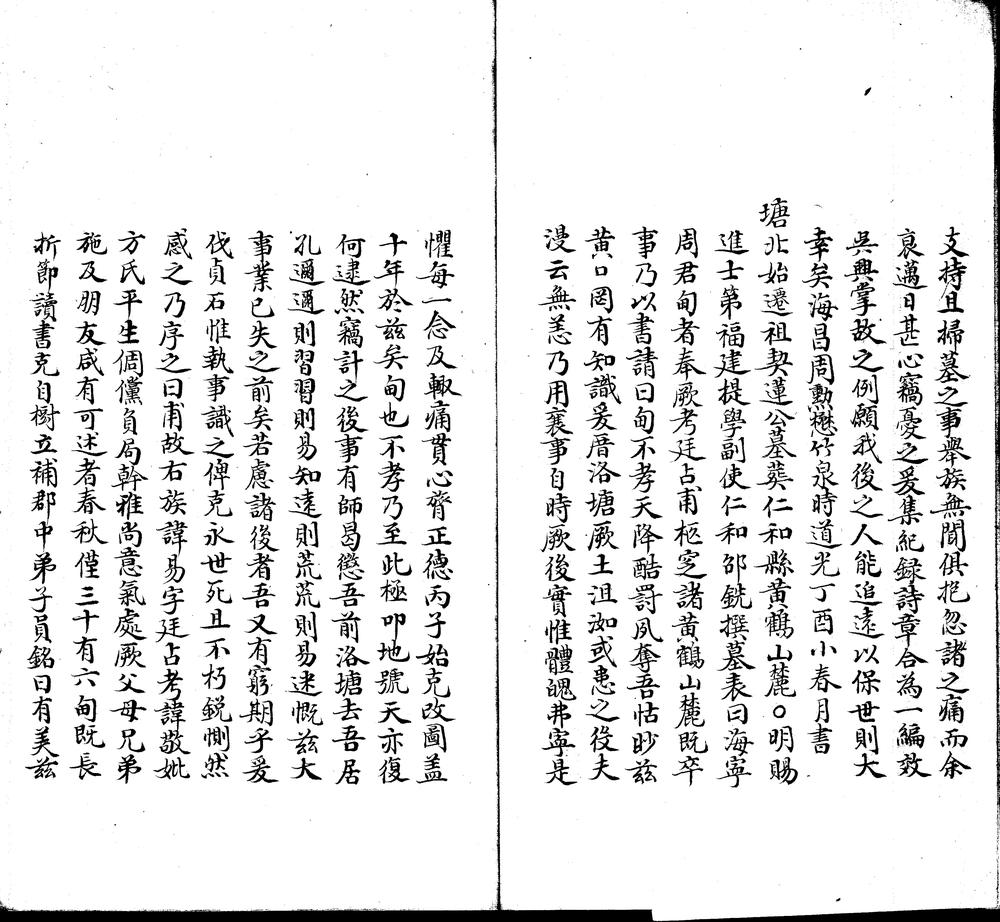 支持且掃墓之事舉族無間俱抱忽諸之痛而余
衰邁日甚心竊憂之爰集紀録詩章合為一編效
吳興掌故之例願我後之人能追遠以保世則大
幸矣海昌周勲懋竹泉時道光丁酉小春月書
塘北始遷祖契蓮公墓葬仁和縣黄鶴山麓○明賜
進士第福建提學副使仁和邵銳撰墓表曰海寧
周君甸者奉厥考廷占甫柩窆諸黄鶴山麓既卒
事乃以書請曰甸不孝天降酷罰夙奪吾怙眇兹
黄口罔有知識爰厝洛塘厥土沮洳或恚之役夫
漫云無恙乃用襄事自時厥後實惟體魄弗寧是
懼每一念及輙痛貫心膂正德丙子始克改圖盖
十年於兹矣甸也不孝乃至此極叩地號天亦復
何逮然竊計之後事有師曷懲吾前洛塘去吾居
孔邇邇則習習則易知遠則荒荒則易迷慨兹大
事業已失之前矣若慮諸後者吾又有窮期乎爰
伐貞石惟執事識之俾克永世死且不朽鋭惻然
感之乃序之曰甫故右族諱易字廷占考諱敬妣
方氏平生倜儻負局幹雅尚意氣處厥父母兄弟
施及朋友咸有可述者春秋僅三十有六甸既長
折節讀書克自樹立補郡中弟子員銘曰有美兹